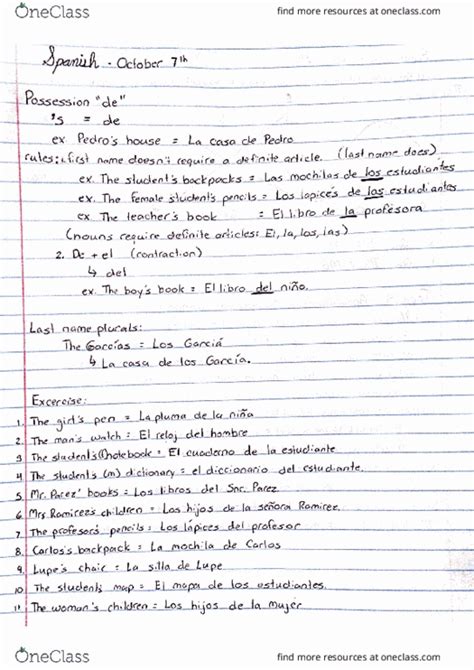 OneClass
find more resources at oneclass.com
Spanish - October 7th
Possession "de"
's = de
ex Pedro's house = La casa de Pedro
rules: 1. first name doesn't require a definite article. (last name does)
ex. The student's backpacks = Las mochilas de los estudiantes
ex. The female student's pencils = Los lapices de las estudiantes
ex. The teacher's book = El libro de la profesora
(nouns require definite articles: El, la, los, las)
2. De + el (contraction)
↳ del
ex. The boy's book = El libro del niño.
Last name plurals:
The Garcías = Los Garciá
↳ La casa de los García.
Excercise:
1. The girl's pen = La pluma de la niña
2. The man's watch = El reloj del hombre
3 The student's (f) notebook = El cuaderno de la estudiante
4 The student's (m) dictionary = el diccionario del estudiante.
5. Mr. Perez' books = Los libros del Snr. Perez
6 Mrs Ramirez's children = Los hijos de la señora Ramirez.
7 The profesor's pencils = Los lápices del profesor
8. Carlos's backpack = La mochila de Carlos
9. Lupe's chair = La silla de Lupe
10. The students' map = El mapa de los estudiantes.
11. The woman's children = Los hijos de la mujer
OneClass
find more resources at oneclass.com